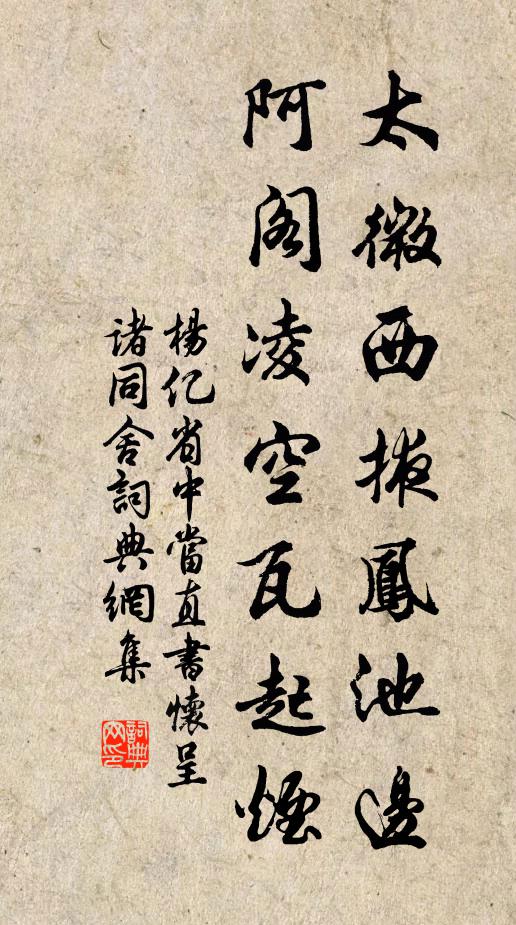 太微西掖鳳池邊
阿閣凌空瓦起煙
楊亿省中當直書懷呈
諸同舍詞典網集
詞典
网印